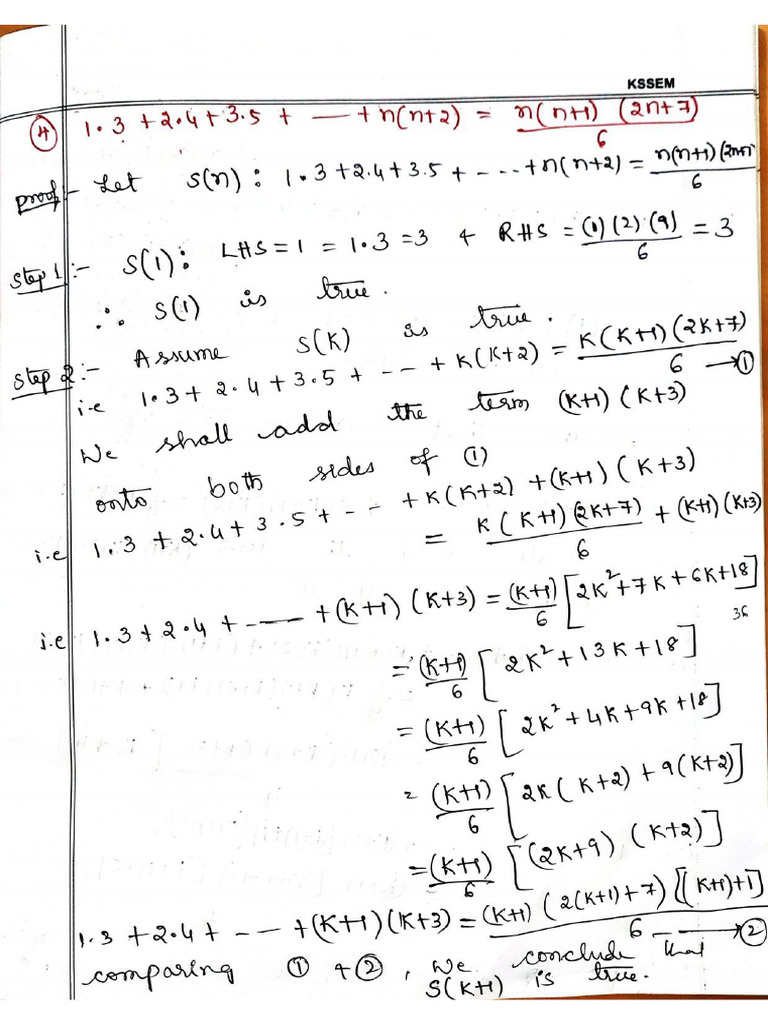 KSSEM
④ 1.3 + 2.4 + 3.5 + --- + n(n+2) = n(n+1) (2n+7) / 6
proof:- Let S(n) : 1.3 + 2.4 + 3.5 + ---- + n(n+2) = n(n+1)(2n+7) / 6
Step 1 :- S(1) : LHS = 1 = 1.3 = 3 & RHS = (1)(2)(9) / 6 = 3
∴ S(1) is true.
Step 2 :- Assume S(K) is true.
i.e 1.3 + 2.4 + 3.5 + --- + K(K+2) = K(K+1)(2K+7) / 6 → ①
We shall add the term (K+1) (K+3)
onto both sides of ①
i.e 1.3 + 2.4 + 3.5 + --- + K(K+2) + (K+1) (K+3)
= K(K+1)(2K+7) / 6 + (K+1) (K+3)
i.e 1.3 + 2.4 + ---- + (K+1) (K+3) = (K+1) / 6 [2K² + 7K + 6K + 18]
36
= (K+1) / 6 [2K² + 13K + 18]
= (K+1) / 6 [2K² + 4K + 9K + 18]
= (K+1) / 6 [2K(K+2) + 9(K+2)]
= (K+1) / 6 [(2K+9) (K+2)]
1.3 + 2.4 + --- + (K+1)(K+3) = (K+1) (2(K+1)+7) [(K+1)+1] / 6 → ②
comparing ① & ②, we conclude that
S(K+1) is true.